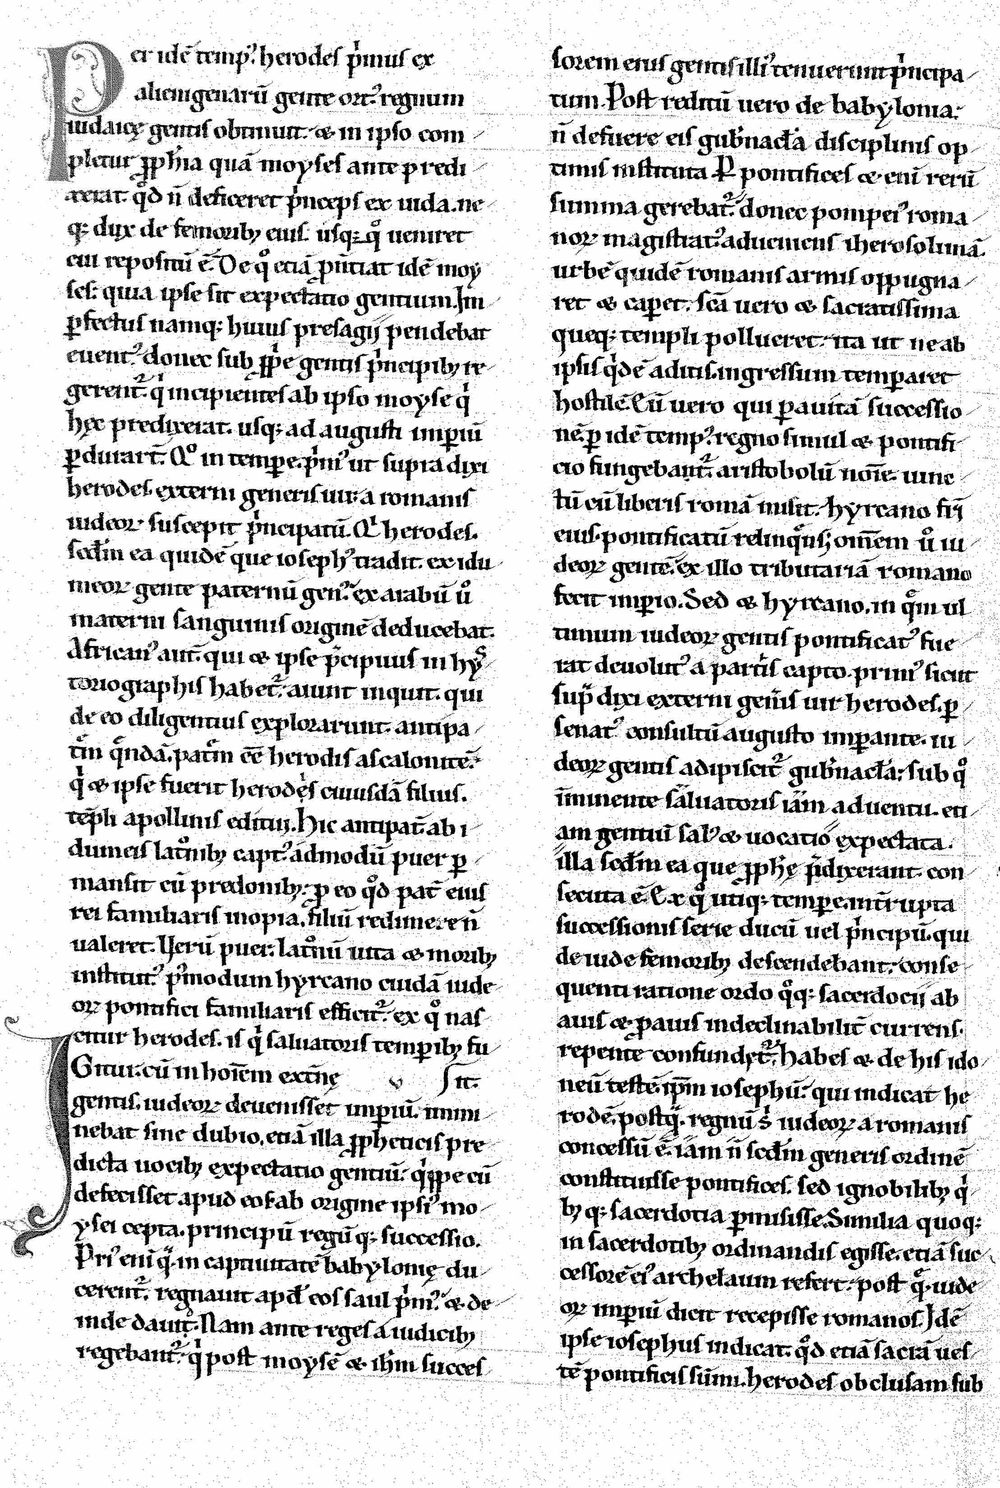 Per idē temp᷒ herodes p̍mus ex
alienigenarū gente ort᷒ regnum
iudaicę gentis obtinuit. & in ipso com
pletur ꝓph̄ia quā moyses ante predi
xerat. qd̄ n̄ deficeret p̍nceps ex iuda. ne
q; dux de femorib; eius. usq; q̊ ueniret
cui repositū ē. De q̊ etiā p̄nūtiat idē moy
ses: quia ipse sit expectatio gentium. Im
ꝑfectus namq; huius presagij pendebat
euent᷒. donec sub ꝓp̍e gentis p̍ncipib; re
gerent᷑. q̍ incipientes ab ipso moyse q̍
hęc predixerat. usq; ad augusti imꝑiū
ꝑdurart̄. Qo in temꝑe. p̍m᷒ ut supra dixi
herodes. externi generis uir. a romanis
iudeoꝝ suscepit p̍ncipatū. Q̍ herodes.
scd̄m ea quidē que ioseph᷒ tradit. ex idu
meoꝝ gente paternū gen᷒. ex arabū ů
materni sanguinis originē deducebat.
African᷒ aut̄. qui & ipse p̄cipuus in hys
toriographis habet᷑. aiunt inquit. qui
de eo diligentius explorarunt. antipa
tr̄m q̄ndā. patr̄m ēē herodis ascalonite.
q̍ & ipse fuerit herodes cuiusdā filius.
tēpli apollinis editui. Hic antipat̄ ab i
dumeis latronib; capt᷒. admodū puer ꝑ
mansit cū predonib;. ꝓ eo qd̄ pat̄ eius
rei familiaris inopia. filiū redimere n̄
ualeret. Verū puer. latronū uita & morib;
institut᷒. p᷒modum hyrcano cuidā iude
oꝝ pontifici familiaris efficit᷑. ex q̊ nas
citur herodes. is q̍ saluatoris temꝑib; fu
Gitur. cū in hoīem extn̄ę it.
gentis. iudeoꝝ deuenisset imꝑiū. immi
nebat sine dubio. etiā illa ꝓpheticis pre
dicta uocib; expectatio gentiū. q̍ppe cū
defecisset apud eos ab origine ipsi᷒ mo
ysei cepta. principū regū q; successio.
Pri᷒ eni q̄. in captiuitatē babylonię du
cerent᷑. regnauit apd̄ eos saul p̍m᷒. & de
inde dauit. Nam ante reges a iudicib;
regebant᷑. q̍ post moysē & ih̄m succes
sorem eius gentis illi᷒ tenuerunt p̍ncipa
tum. Post reditū uero de babylonia:
n̄ defuere eis gub̄nacl̄a disciplinis op
timis instituta. P pontifices & enī rerū
summa gerebat᷑. donec pompei᷒ roma
noꝝ magistrat᷒ adueniens iherosolimā.
urbē quidē romanis armis oppugna
ret & caꝑet. scā uero & sacratissima
queq; templi pollueret. ita ut ne ab
ipsis q̍dē aditis. ingressum temꝑaret
hostilē. Eū uero qui ꝑ auitā successio
nē. ꝑ idē temp᷒. regno simul & pontifi
cio fungebant᷑. aristobolū noīe. uinc
tū cū liberis romā misit. hyrcano frī
eius. pontificatū relinq̍ns; omēm ů iu
deoꝝ gentē. ex illo tributariā romano
fecit imperio. Sed & hyrcano. in q̄m ul
timum iudeoꝝ gentis pontificat᷒ fue
rat deuolut᷒ a partis capto. prim᷒ sicut
sup̄ dixi externi gen̄is uir herodes. ꝑ
senat᷒ consultū augusto imꝑante. iu
deoꝝ gentis adipiscit᷑ gub̄nacl̄a: sub q̊
īminente saluatoris iam aduentu. eti
am gentiū sal᷒ & uocatio expectata.
illa scd̄m ea que ꝓph̄ę p̄dixerant. con
secuta ē. Ex q̊ utiq; temꝑe. int̄rupta
successionis serie ducū uel p̍ncipū. qui
de iude femorib; descendebant. conse
quenti ratione ordo q̊q; sacerdocii ab
auis & ꝓauis indeclinabilit̄ currens.
repente confundit᷑. habes & de his ido
neū testē. ipm̄ iosephū. qui indicat he
rodē. postq̄. regnū s̍ iudeoꝝ a romanis
concessū ē. iam n̄ scd̄m generis ordinē
constituisse pontifices. sed ignobilib; q̍
b; q; sacerdotia ꝑmisisse. Similia quoq;
in sacerdotib; ordinandis egisse. etiā suc
cessorē ei᷒ archelaum refert. post q̄. iude
oꝝ imꝑiū dicit recepisse romanos. Idē
ipse iosephus indicat. qd̄ etiā sacrā ues
tē pontificis sūmi. herodes obclusam sub